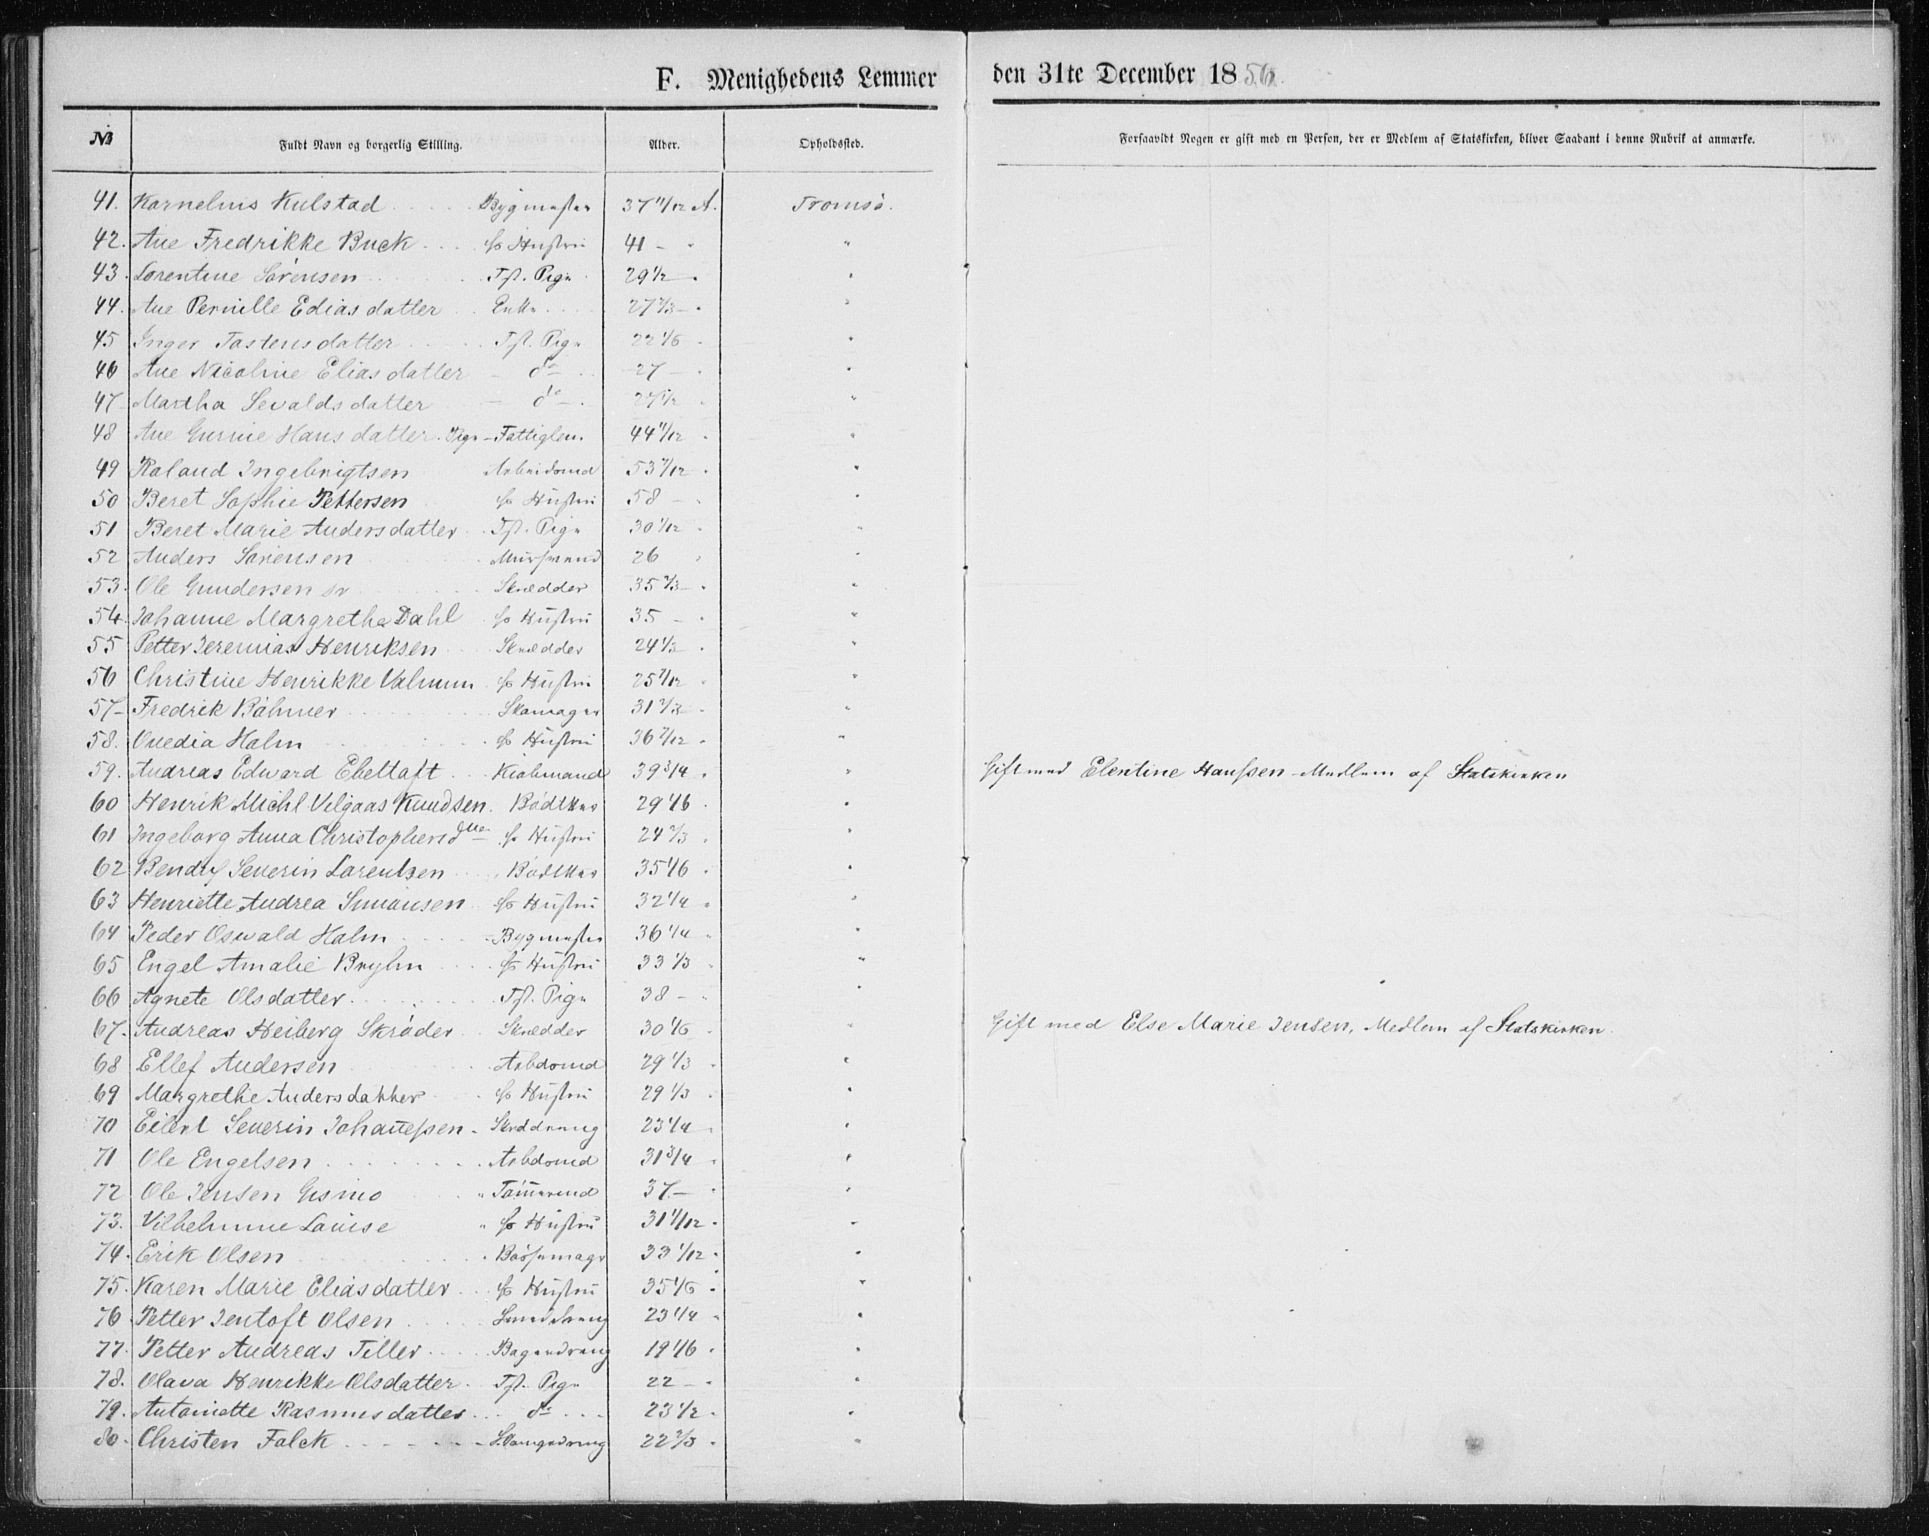 F. Menighedens Lemmer den 31te December 1856.
№ Fuldt Navn og borgerlig Stilling. Alder. Opholdssted. Forsaavidt Nogen er gift med en Person, der er Medlem af Statskirken, bliver Saadant i denne Rubrik at anmærke.
41. Kornelius Kulstad Bygmester 37 11/12 A. Tromsø.
42. Ane Fredrikke Buck Hustru 41 - "
43. Lorentine Sørensen Tjst. Pige 29 1/2 "
44. Ane Pernille Ediasdatter Enke 27 2/3 "
45 Inger Tostensdatter Tjst. Pige 22 1/6 "
46 Ane Nicoline Eliasdatter - do 27 - "
47 Martha Sevaldsdatter - do - "
48 Ane Gurine Hansdatter. Pige - Fattiglem. 44 11/12 "
49 Roland Ingebrigtsen Arbeidsmd 53 7/12 "
50 Beret Sophie Pettersen Hustru 58 - "
51 Beret Marie Andersdatter Tjst. Pige 30 1/12 "
52 Anders Sørensen Muurmand 26 "
53. Ole Gundersen sr Skrædder 35 2/3 "
54. Johanne Margrethe Dahl Hustru 35 - "
55 Petter Jeremias Henriksen Skrædder 24 1/3 "
56 Christine Henrikke Valmun Hustru 25 7/12 "
57 Fredrik Bøhmer Skomager 31 2/3 "
58. Ovedia Holm Hustru 36 7/12 "
59. Andreas Edward Ebeltoft Kiøbmand 39 3/4 " Gift med Elentine Hanssen - Medlem af Statskirken
60 Henrik Michl Vilgaas Knudsen. Bødker 29 1/6 "
61 Ingeborg Anna Christophersdtter Hustru 24 2/3 "
62 Severin Lorentsen Bødker 35 1/6 "
63 Henriette Andrea Simonsen Hustru 32 1/4 "
64 Peder Oswald Holm Bygmester 36 1/4 "
65 Engel Amalie Brylin Hustru 33 1/3 "
66 Agnete Olsdatter Tjst. Pige 38 - "
67. Andreas Heiberg Skrøder Skrædder 30 1/6 " Gift med Else Marie Jensen, Medlem af Statskirken.
68 Ellef Andersen Arbdsmd 29 1/3 "
69 Margrethe Andersdatter Hustru 29 1/3 "
70 Eilert Severin Johannessen Skræddreng 23 1/4 "
71 Ole Engelsen Arbdsmd 31 3/4 "
72 Ole Jensen Gsmo Tømmermd 37 - "
73. Vilhelmine Louise Hustru 31 1/12 "
74. Erik Olsen Bøssemager 33 1/12 "
75. Karen Marie Eliasdatter Hustru 35 1/6 "
76 Petter Jentoft Olsen Smeddreng 23 1/4 "
77. Petter Andreas Tiller Bagerdreng 19 1/6 "
78. Olava Henrikke Olsdatter Tjst. Pige 22 - "
79. Antoinette Rasmusdatter do 23 1/2 "
80. Christen Falck Skomgrdreng 22 2/3 "